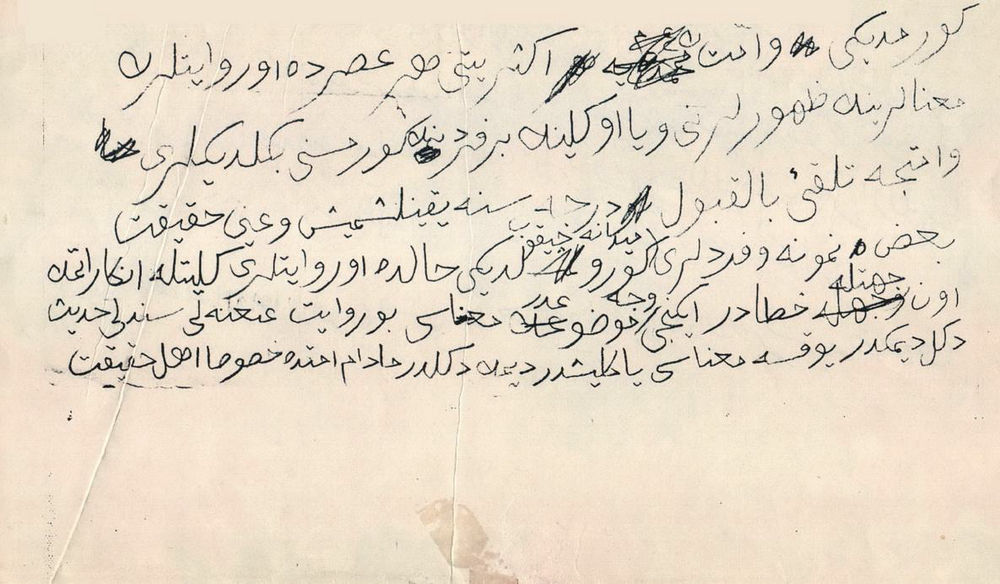 كورمديكى و امت اكثريتى هر عصرده او روايتلرك
معنالرينه ظهورلرنى ويا اوكلينه بر فردينه كورمسنى بكلديكلرى
و امتجه تلقئ بالقبول درجه سنه يقينلشميش و عينى حقيقت
بعض نمونه و فردلرى ميدانه چيقوب كورولديكى حالده او روايتلرى كليتله انكار ايتمك
اون جهتله خطادر ايكنجى وجه موضوعدر معناسى بو روايت عنعنه لى سندلى حديث
دكل ديمكدر يوقسه معناسى ياكليشدر ديمك دكلدر مادام امتده خصوصا اهل حقيقت